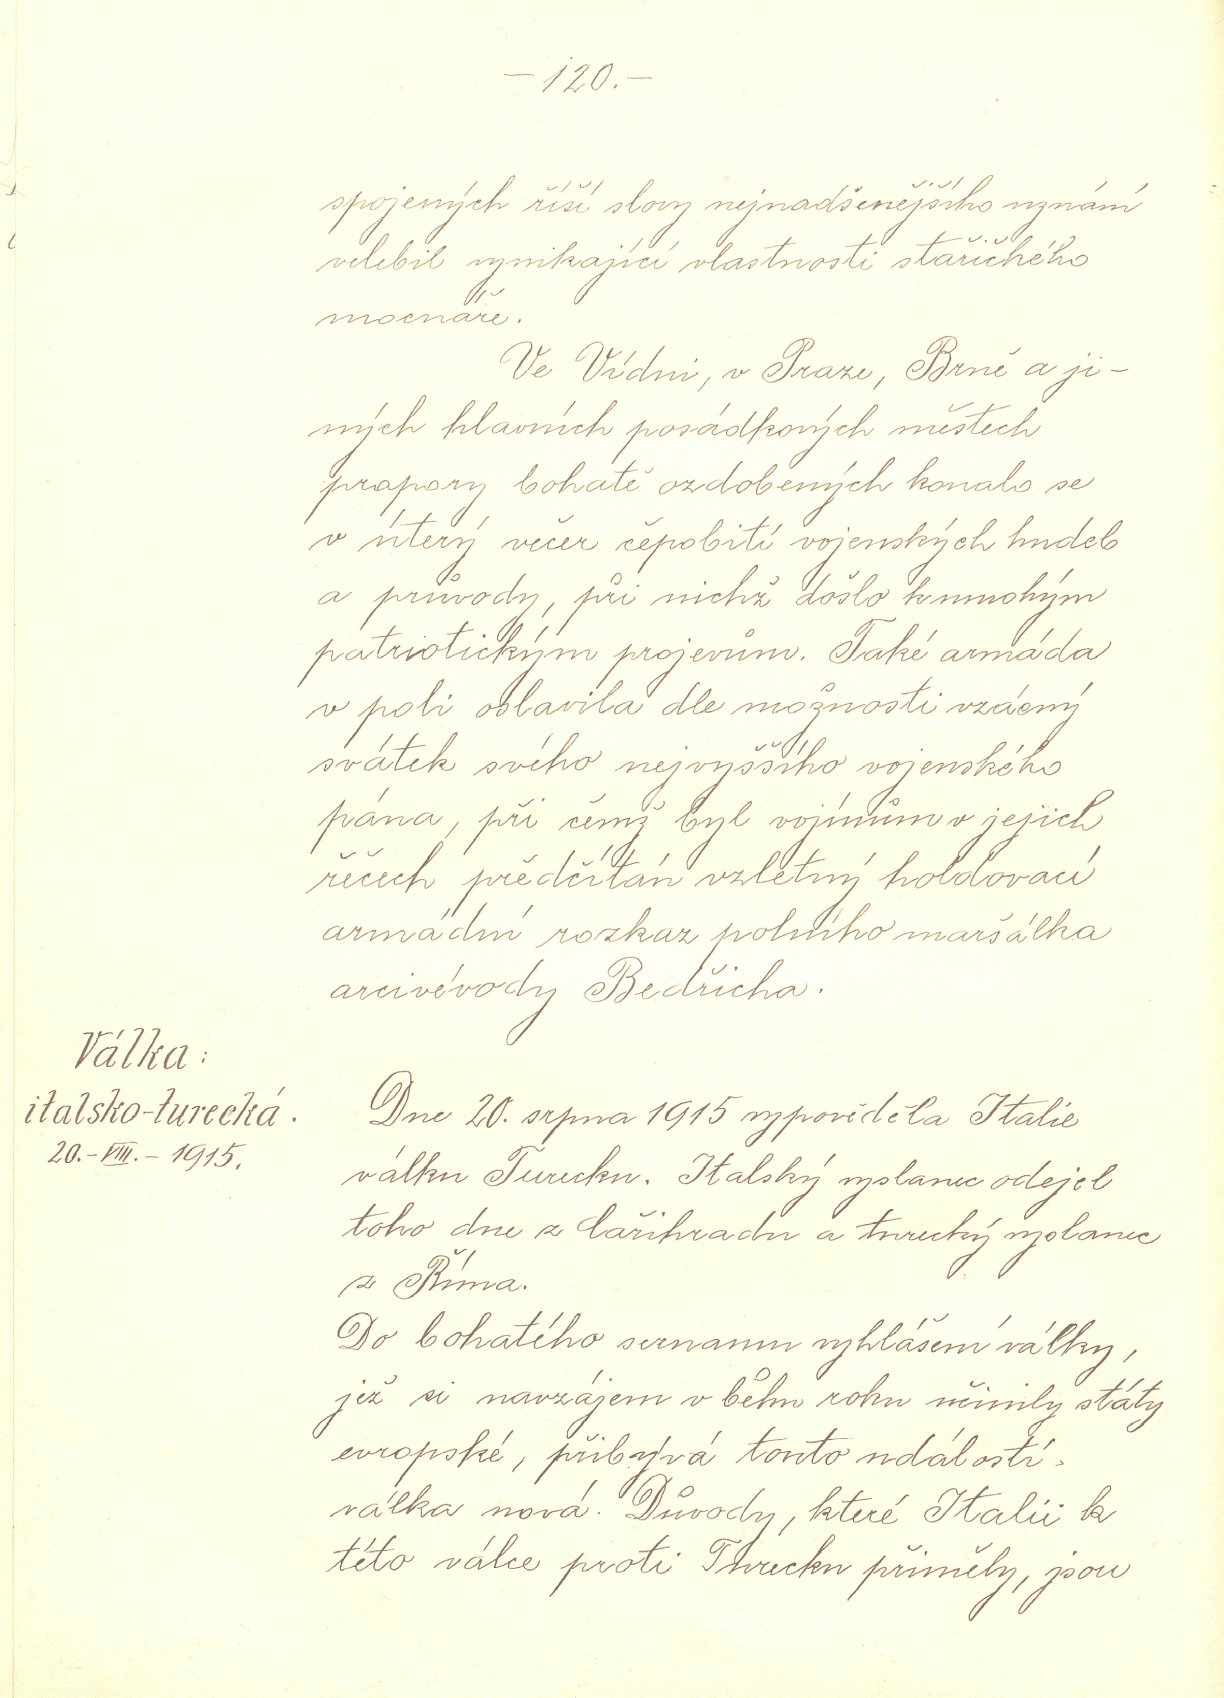 – 120. –
spojených říší slovy nejnadšenějšího uznání
velebil vynikající vlastnosti stařičkého
mocnáře.
Ve Vídni, v Praze, Brně a ji-
ných hlavních posádkových městech
prapory bohatě ozdobených konalo se
v úterý večer čepobití vojenských hudeb
a průvody, při nichž došlo k mnohým
patriotickým projevům. Také armáda
v poli oslavila dle možnosti vzácný
svátek svého nejvyššího vojenského
pána, při čemž byl vojínům v jejich
řečech předčítán vzletný holdovací
armádní rozkaz polního maršálka
arcivévody Bedřicha.
Válka:
italsko-turecká.
20.-VIII.-1915.
Dne 20. srpna 1915 vypověděla Italie
válku Turecku. Italský vyslanec odejel
toho dne z Cařihradu a turecký vyslanec
z Říma.
Do bohatého seznamu vyhlášení války,
jež si navzájem v běhu roku učinily státy
evropské, přibývá touto událostí
válka nová. Důvody, které Italii k
této válce proti Turecku přiměly, jsou